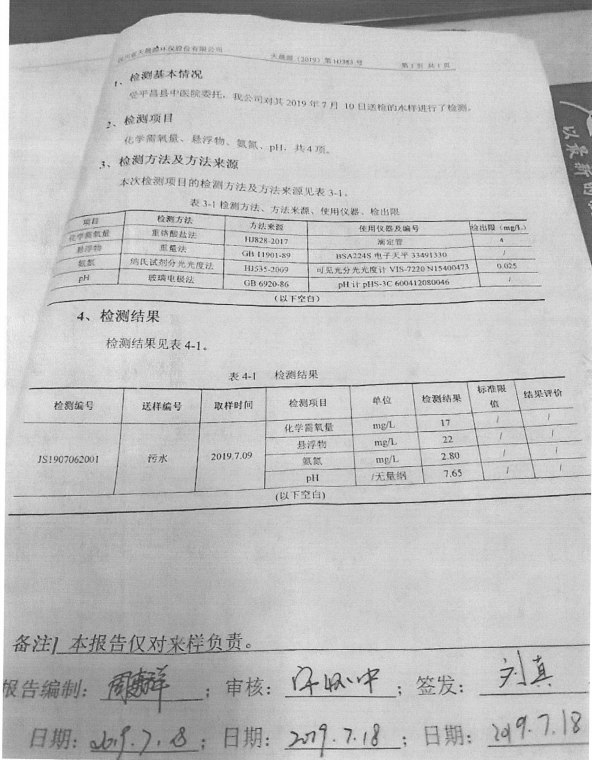 四川省天晟源环保股份有限公司 天晟源（2019）第HJ383号 第1页 共1页
1、检测基本情况
受平昌县中医院委托，我公司对其2019年7月10日送检的水样进行了检测。
2、检测项目
化学需氧量、悬浮物、氨氮、pH，共4项。
3、检测方法及方法来源
本次检测项目的检测方法及方法来源见表3-1。
表3-1 检测方法、方法来源、使用仪器、检出限
项目 检测方法 方法来源 使用仪器及编号 检出限（mg/L）
化学需氧量 重铬酸盐法 HJ828-2017 滴定管 4
悬浮物 重量法 GB 11901-89 BSA224S 电子天平 33491330 /
氨氮 纳氏试剂分光光度法 HJ535-2009 可见光分光光度计 VIS-7220 N15400473 0.025
pH 玻璃电极法 GB 6920-86 pH计 pHS-3C 600412080046 /
（以下空白）
4、检测结果
检测结果见表4-1。
表4-1 检测结果
检测编号 送样编号 取样时间 检测项目 单位 检测结果 标准限值 结果评价
JS1907062001 污水 2019.7.09 化学需氧量 mg/L 17 / /
悬浮物 mg/L 22 / /
氨氮 mg/L 2.80 / /
pH /无量纲 7.65 / /
（以下空白）
备注 本报告仅对来样负责。
报告编制： ；审核： ；签发：刘真
日期：2019.7.18；日期：2019.7.18；日期：2019.7.18
以最新的